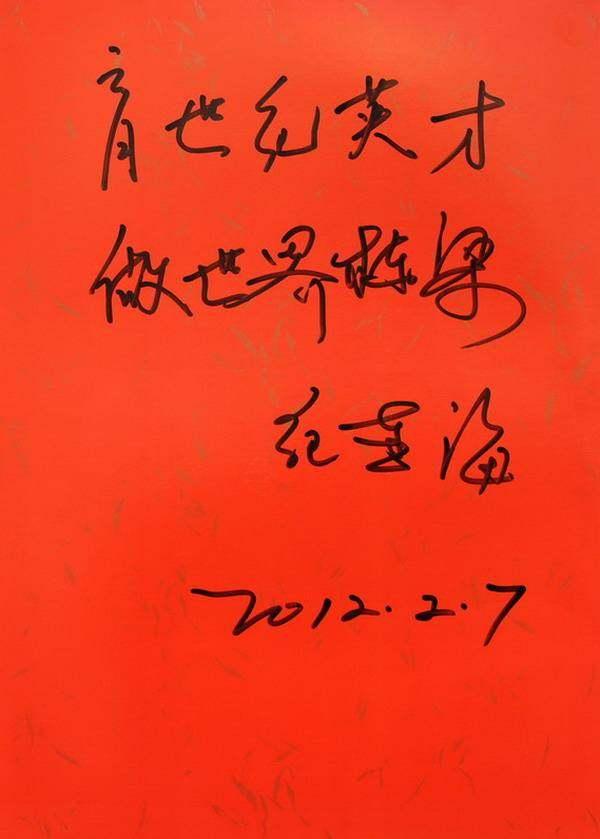 育世纪英才
做世界栋梁
纪喜海
2012.2.7